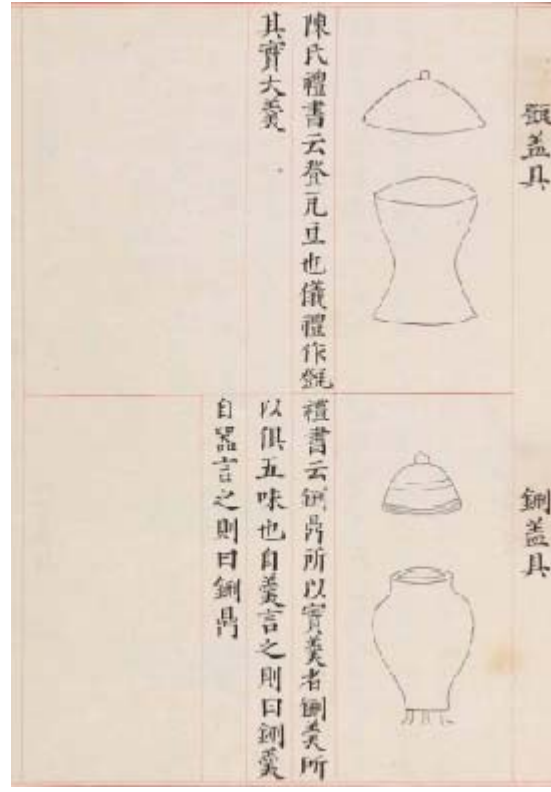 甑盖具
陳氏禮書云登瓦豆也儀禮作甑
其實大羹
鉶盖具
禮書云鉶鼎所以實羹者鉶羹所
以俱五味也自羹言之則曰鉶羹
自器言之則曰鉶鼎